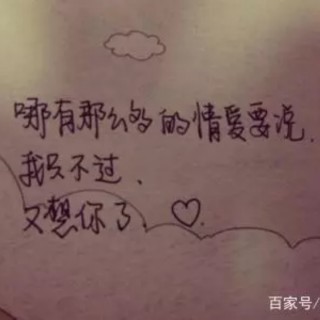 哪有那么多的情爱要说.
我只不过.
又想你了. ♡
百家号/